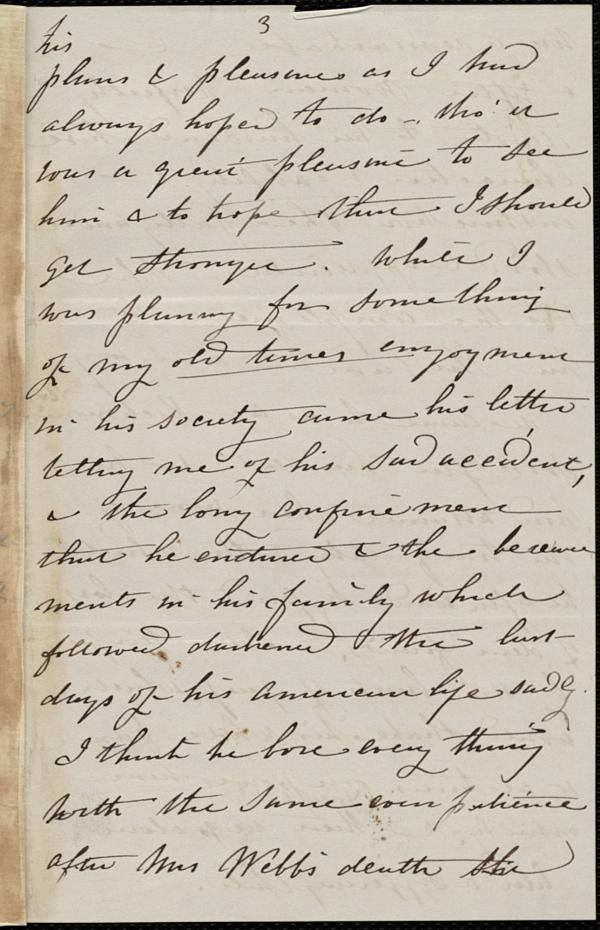 3
his
plans & pleasures as I had
always hoped to do - tho' it
was a great pleasure to see
him & to hope that I should
get stronger. While I
was planning for something
of my old times enjoyment
in his society came his letter
telling me of his sad accident,
& the long confinement
that he endured & the bereave
ments in his family which
followed darkened the last
days of his American life sadly.
I think he bore every thing
with the same even patience
after Mrs Webb's death the